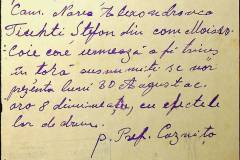 Cam. Naria Alexandrencu
Tischti Ștefan din com Moisdr.
Coie care urmează a fi trimis
în toră susnumiti se vor
prezenta luni 30 August a.c.
oro 8 dimineața, cu efectele
lor de drum.
p. Pref. Cozmița